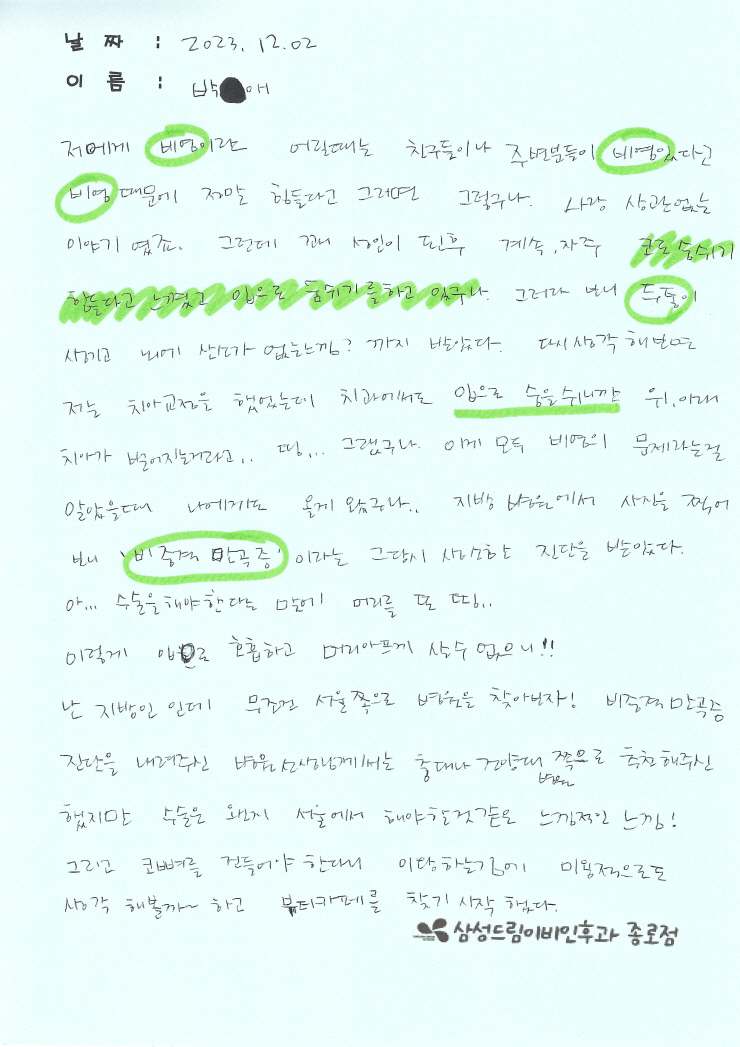 날 짜 : 2023. 12. 02
이 름 : 박 애
저에게 비염이란 어릴때는 친구들이나 주변분들이 비염있다고
비염때문에 정말 힘들다고 그러면 그렇구나. 나랑 상관없는
이야기 였죠. 그런데 꽤 성인이 된후 계속, 자주 코로 숨쉬기
힘들다고 느꼈고 입으로 숨쉬기를하고 있구나. 그러라 보니 두통이
생기고 뇌에 산소가 없는느낌? 까지 받았다. 다시생각 해보면
저는 치아교정을 했었는데 치과에서도 입으로 숨을쉬니깐 위, 아래
치아가 벌어지는거라고.. 띵... 그랬구나. 이게 모두 비염의 문제라는걸
알았을때 나에게도 올게 왔구나.. 지방 병원에서 사진을 찍어
보니 '비중격 만곡증' 이라는 그당시 생소한 진단을 받았다.
아... 수술을해야한다는 말에 머리를 또 띵..
이렇게 입으로 호흡하고 머리아프게 살수 없으니!!
난 지방인 인데 무조건 서울쪽으로 병원을 찾아보자! 비중격만곡증
진단을 내려주신 병원선생님께서는 충대나 건양대 쪽으로 추천해주신
병원
했지만 수술은 왠지 서울에서 해야할것같은 느낌적인 느낌!
그리고 코뼈를 건들어야 한다니 이왕하는김에 미용적으로도
생각 해볼까~ 하고 뷰티카페를 찾기 시작 했다.
삼성드림이비인후과 종로점